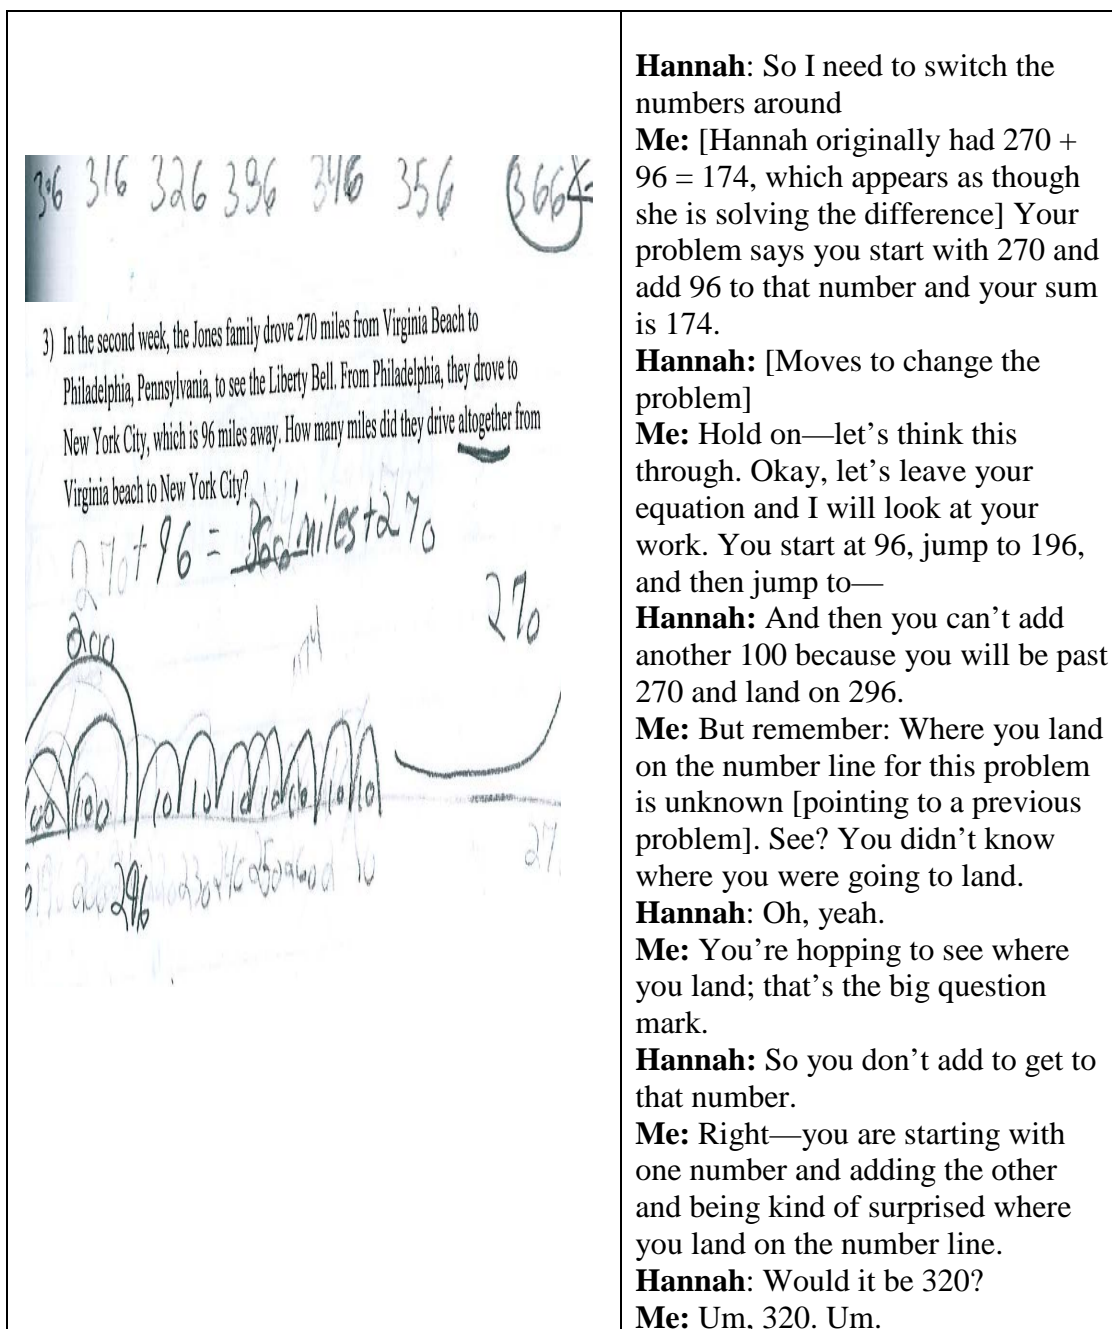 306 316 326 336 346 356 366
3) In the second week, the Jones family drove 270 miles from Virginia Beach to
Philadelphia, Pennsylvania, to see the Liberty Bell. From Philadelphia, they drove to
New York City, which is 96 miles away. How many miles did they drive altogether from
Virginia beach to New York City?
270 + 96 = 366 miles + 270
270
200
174
100 100 10 10 10 10 10 10 10
196 296 230 240 250 260
Hannah: So I need to switch the
numbers around
Me: [Hannah originally had 270 +
96 = 174, which appears as though
she is solving the difference] Your
problem says you start with 270 and
add 96 to that number and your sum
is 174.
Hannah: [Moves to change the
problem]
Me: Hold on—let’s think this
through. Okay, let’s leave your
equation and I will look at your
work. You start at 96, jump to 196,
and then jump to—
Hannah: And then you can’t add
another 100 because you will be past
270 and land on 296.
Me: But remember: Where you land
on the number line for this problem
is unknown [pointing to a previous
problem]. See? You didn’t know
where you were going to land.
Hannah: Oh, yeah.
Me: You’re hopping to see where
you land; that’s the big question
mark.
Hannah: So you don’t add to get to
that number.
Me: Right—you are starting with
one number and adding the other
and being kind of surprised where
you land on the number line.
Hannah: Would it be 320?
Me: Um, 320. Um.